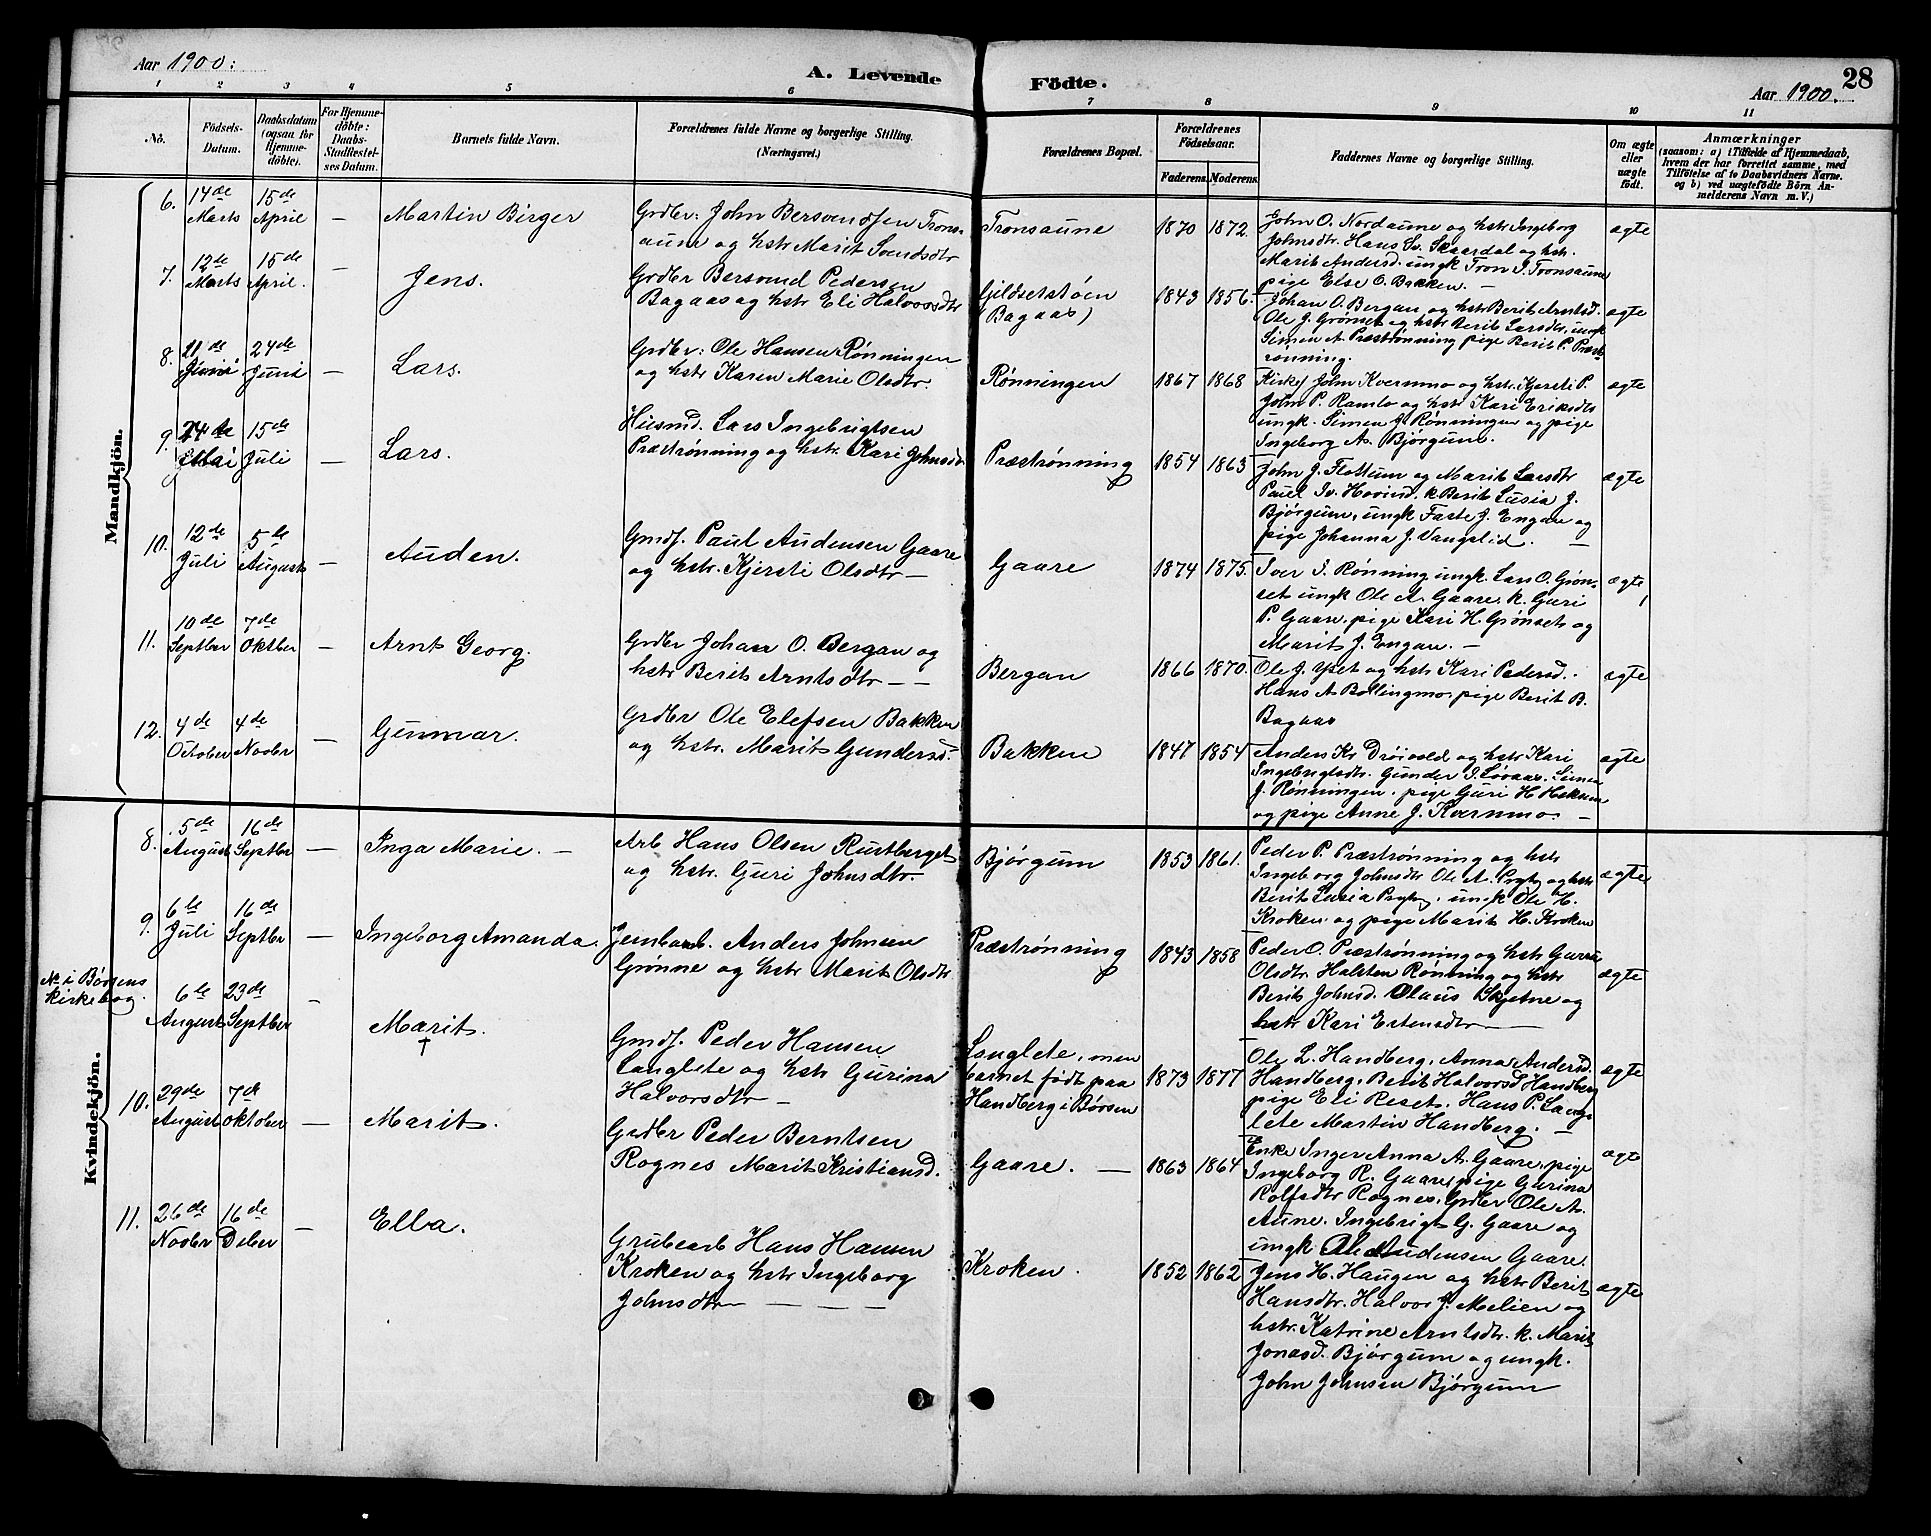 Aar 1900.
A. Levende Födte.
Aar 1900.
28
1 2 3 4 5 6 7 8 9 10 11
No.
Födsels-Datum.
Daabsdatum (ogsaa for Hjemme-döbte).
For Hjemme-döbte: Daabs-Stadfæstel-ses Datum.
Barnets fulde Navn.
Forældrenes fulde Navne og borgerlige Stilling. (Næringsvei.)
Forældrenes Bopæl.
Forældrenes Födselsaar.
Faderens. Moderens.
Faddernes Navne og borgerlige Stilling.
Om ægte eller uægte födt.
Anmærkninger
(saasom: a) i Tilfælde af Hjemmedaab, hvem der har forrettet samme, med Tilföielse af to Daabsvidners Navne. og b) ved uægtefödte Börn An-melderens Navn m. V.)
Mandkjön.
6. 14de Marts 15de April — Martin Birger
Grdbr: John Bersvendsen Trons-
aune og hstr Marit Svendsdtr
Tronsaune 1870 1872.
John O. Nordaune og hstr Ingeborg
Johnsdtr. Hans Sv. Skaardal og hstr.
Marit Andersd. ungk Tron J. Tronsaune
pige Else O. Bakken. —
ægte
7. 12de Marts 15de April. — Jens.
Grdbr Bersvend Pedersen
Bagaas og hstr Eli Halvorsdtr
Gjildsetstøen
(Bagaas)
1843 1856.
Johan O. Bergan og hstr Berit Arntsd.
Ole J. Grønset og hstr Berit Larsdtr, ungk
Simen A. Præstrønning pige Berit P. Præst-
rønning.
ægte
8. 21de Juni 24de Juni — Lars.
Grdbr: Ole Hansen Rønningen
og hstr Karen Marie Olsdtr.
Rønningen 1867 1868
Kirkes. John Kvernmo og hstr. Kjersti P.
John P. Ramlo og hstr Kari Eriksdtr
ungk. Simen J. Rønningen og pige
Ingeborg A. Bjørgum.
ægte
9. 24de Mai 15de Juli — Lars.
Husmd. Lars Ingebrigtsen
Præstrønning og hstr. Kari Johnsdr
Præstrønning 1854 1863
John J. Flottum og Marit Larsdtr
Paul Iv. Hovind. k Berit Lusia J.
Bjørgum, ungk Faste J. Engan og
pige Johanna J. Vangslid. —
ægte
10. 12de Juli 5te August — Auden.
Gmdf. Paul Audensen Gaare
og hstr. Kjersti Olsdtr —
Gaare 1874 1875.
Iver I. Rønning ungk. Lars O. Grøn-
set ungk Ole A. Gaare, k. Guri
P. Gaare, pige Kari H. Grønset og
Marit J. Engan. —
ægte
11. 10de Septber 7de Oktber — Arnt Georg.
Grdbr Johan O. Bergan og
hstr Berit Arntsdtr — —
Bergan 1866 1870.
Ole J. Yset og hstr Kari Pedersd.
Hans A. Bollingmo, pige Berit B.
Bagaas
ægte
12. 4de October 4de Novbr — Gunmar.
Grdbr Ole Elefsen Bakken
og hstr. Marit Gundersd.
Bakken 1847 1854
Anders Kr Drøivold og hstr Kari
Ingebrigtsdtr. Gunder J. Løvaas. Simen
J. Rønningen. pige Guri H. Hokum
og pige Anne J. Kvernmo —
ægte
Kvindekjön.
8. 5de August 16de Septbr — Inga Marie. —
Arb Hans Olsen Rustberget
og hstr. Guri Johnsdtr.
Bjørgum 1853 1861.
Peder P. Præstrønning og hstr
Ingeborg Johnsdtr Ole A. Prytz og hstr
Berit Lusia Prytz. ungk Ole H.
Kroken. og pige Marit H. Kroken
ægte
9. 6te Juli 16de Septbr — Ingeborg Amanda.
Jernbarb. Anders Johnsen
Grønne og hstr Marit Olsdtr
Præstrønning 1843 1858
Peder O. Præstrønning og hstr Gurru
Olsdtr. Halsten Rønning og hstr
Berit Johnsd. Olaus Skjetne og
hstr Kari Estensdtr —
ægte
No i Børsens Kirkebog. 6te August 23de Septber — Marit. †
Gmdf. Peder Hansen
Langlete og hstr Gurina
Halvorsdtr —
Langlete, men
barnet født paa
Handberg i Børsen
1873 1877
Ole L. Handberg, Anna Andersd.
Handberg, Berit Halvorsd. Handberg
pige Eli Reset. Hans P. Lang-
lete Martin Handberg. —
ægte
10. 29de August 7de Oktober — Marit.
Grdbr Peder Berntsen
Rognes Marit Kristiansd.
Gaare. — 1863 1864
Enke Inger Anna A. Gaare, pige
Ingeborg R. Gaare, pige Gurina
Rolfsdtr Rognes. Grdbr Ole A.
Aune. Ingebrigt G. Gaare og
ungk Ole Audensen Gaare.
ægte
11. 26de Novbr 16de Dcber — Ella.
Grubearb Hans Hansen
Kroken og hstr Ingeborg
Johnsdtr — — — —
Kroken. 1852 1862
Jens H. Haugen og hstr Berit
Hansdtr. Halvor J. Melien og
hstr. Katrine Arntsdtr. k. Marit
Jonasd. Bjørgum og ungk.
John Johnsen Bjørgum
ægte